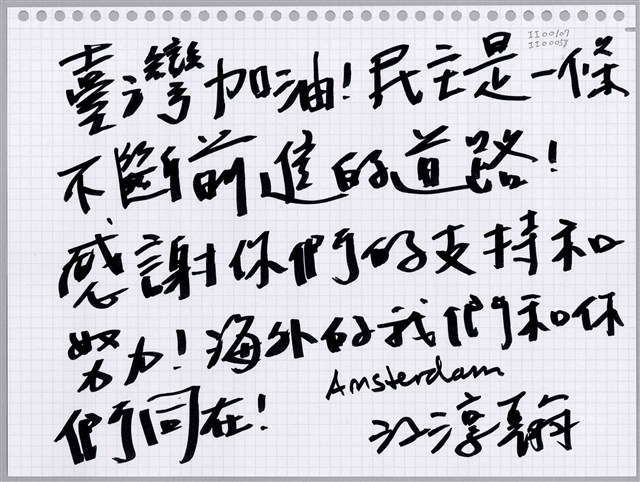 II00107
II00058
臺灣加油!民主是一條
不斷前進的道路!
感謝你們的支持和
努力!海外的我們和你
們同在!
Amsterdam
江淳